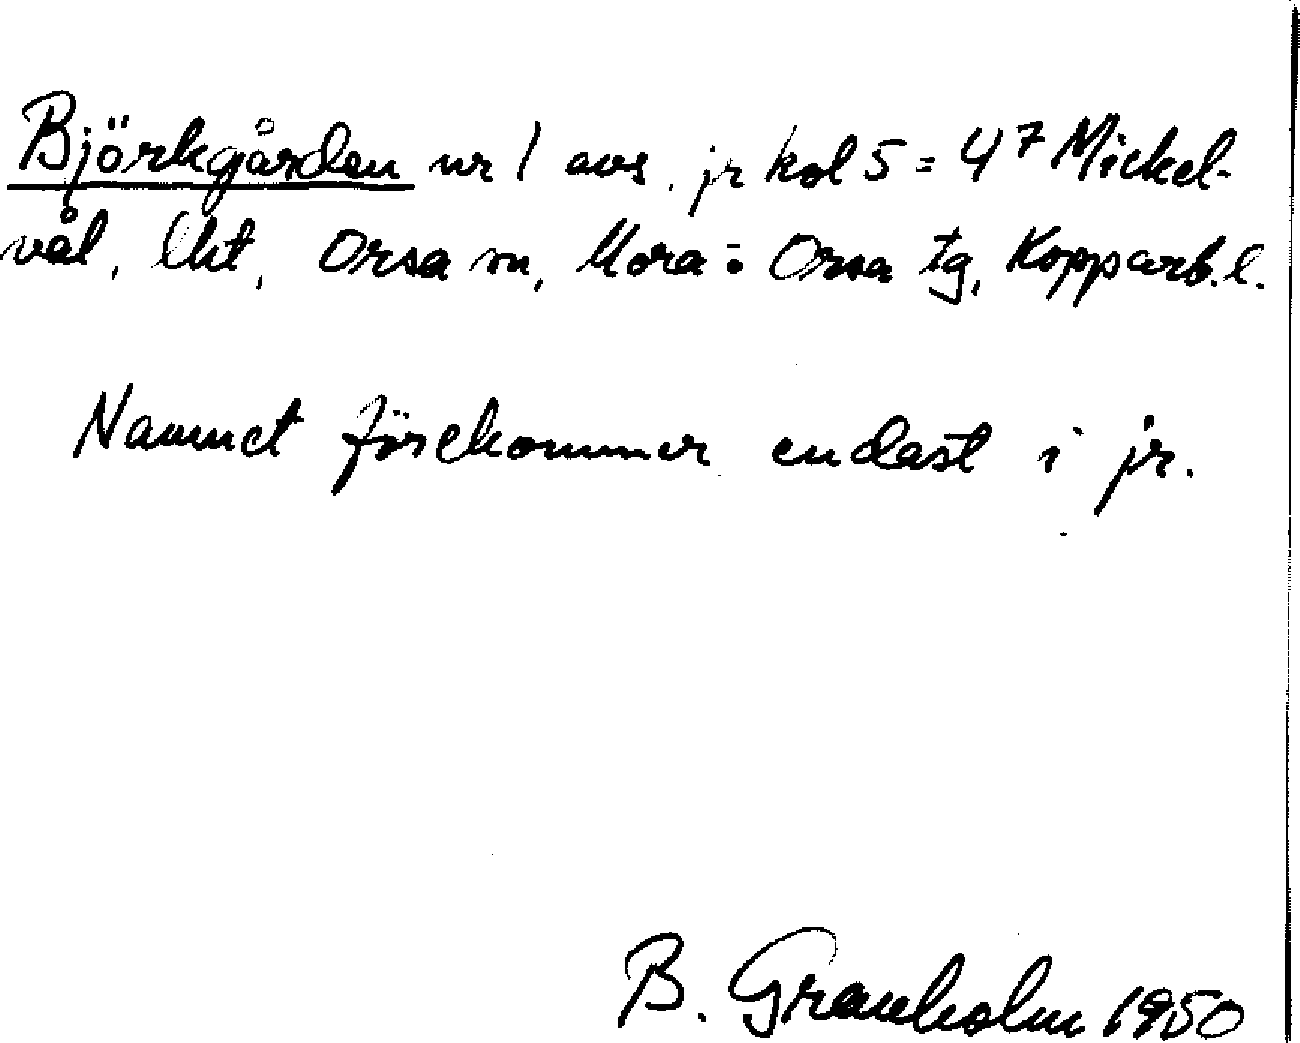 Björkgården nr 1 avs. jr kol 5 = 4⁷ Mickel-
vål, Orsa m, Mora : Orsa tg, Kopparb.l.
Namnet förekommer endast i jr.
B. Granholm 1950